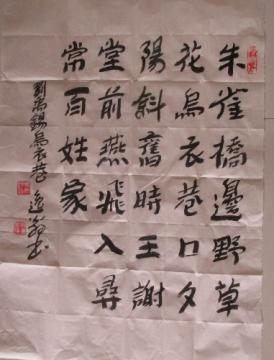 朱雀橋邊野草
花烏衣巷口夕
陽斜舊時王謝
堂前燕飛入尋
常百姓家
劉禹錫烏衣巷